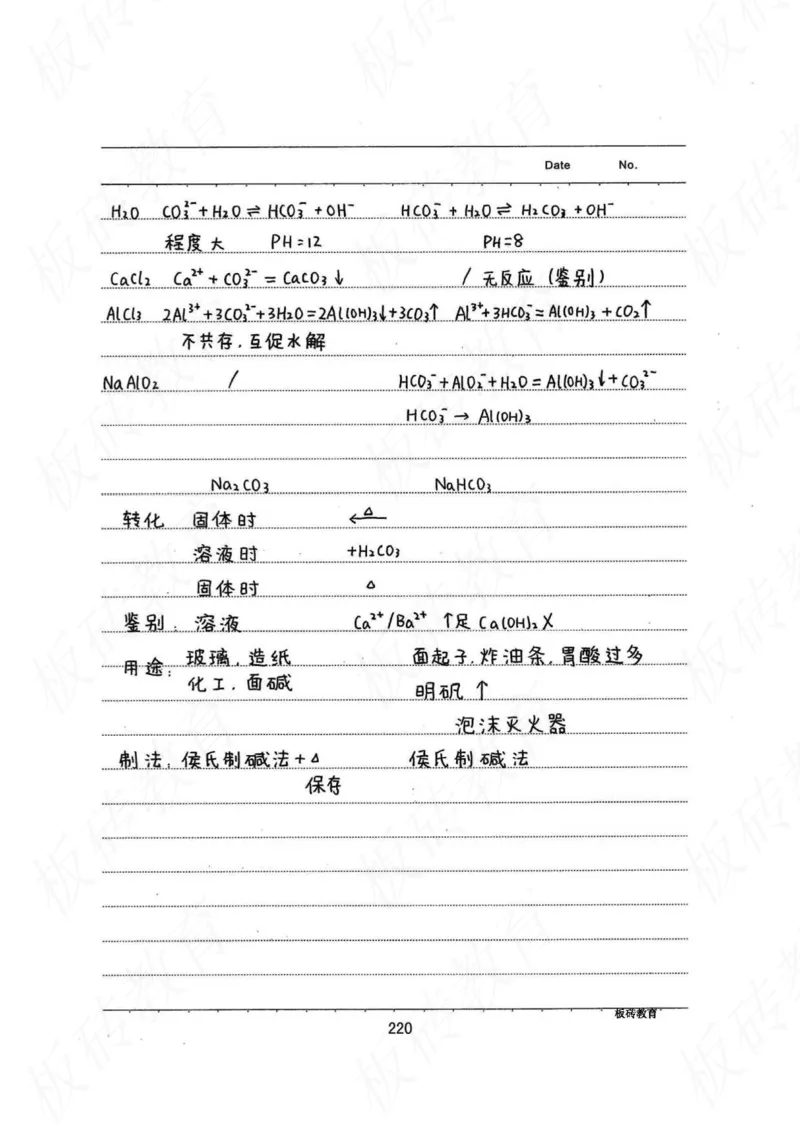 Date No.
H₂O CO₃²⁻+H₂O ⇌ HCO₃⁻+OH⁻ HCO₃⁻+H₂O ⇌ H₂CO₃+OH⁻
程度大 PH=12 PH=8
CaCl₂ Ca²⁺+CO₃²⁻=CaCO₃↓ / 无反应(鉴别)
AlCl₃ 2Al³⁺+3CO₃²⁻+3H₂O=2Al(OH)₃↓+3CO₃↑ Al³⁺+3HCO₃⁻=Al(OH)₃+CO₂↑
不共存,互促水解
NaAlO₂ / HCO₃⁻+AlO₂⁻+H₂O=Al(OH)₃↓+CO₃²⁻
HCO₃⁻→Al(OH)₃
Na₂CO₃ NaHCO₃
转化 固体时 ←△
溶液时 +H₂CO₃
固体时 △
鉴别:溶液 Ca²⁺/Ba²⁺ ↑足 Ca(OH)₂ X
用途:玻璃,造纸 面起子,炸油条,胃酸过多
化工,面碱 明矾↑
泡沫灭火器
制法:侯氏制碱法+△ 侯氏制碱法
保存
板砖教育
220